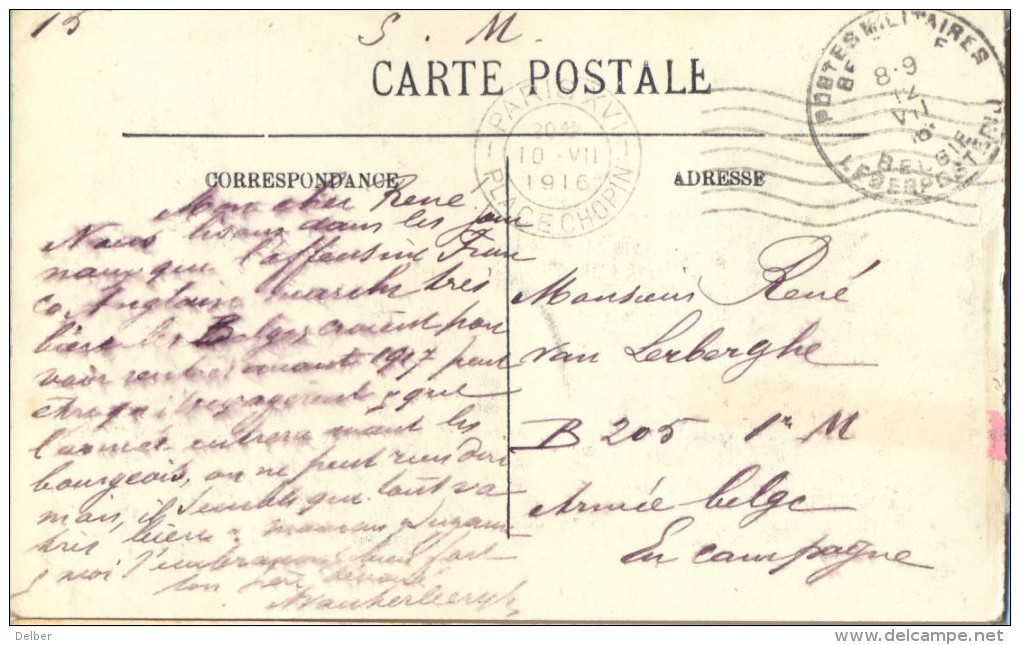 15
S. M.
CARTE POSTALE
POSTES MILITAIRES
BELGIE
LEGERPOSTERIJ
8-9
VII
PARIS XVI
10 - VII
1916
PLACE CHOPIN
CORRESPONDANCE
ADRESSE
Mon cher René
Nous lisons dans les jour
naux que l'offensive Fran
co Anglaise marche très
bien les Belges croient pou
voir rentrer avant 1917 peut
être qu'ils exagèrent et que
l'armée entrera avant les
bourgeois, on ne peut rien dire
mais, il semble que tout va
très bien. maman Suzanne
& moi t'embrassons bien fort
ton père dévoué
Monsieur René
van Lerberghe
B 205 1r M
Armée belge
En campagne
Delber
delcampe.net